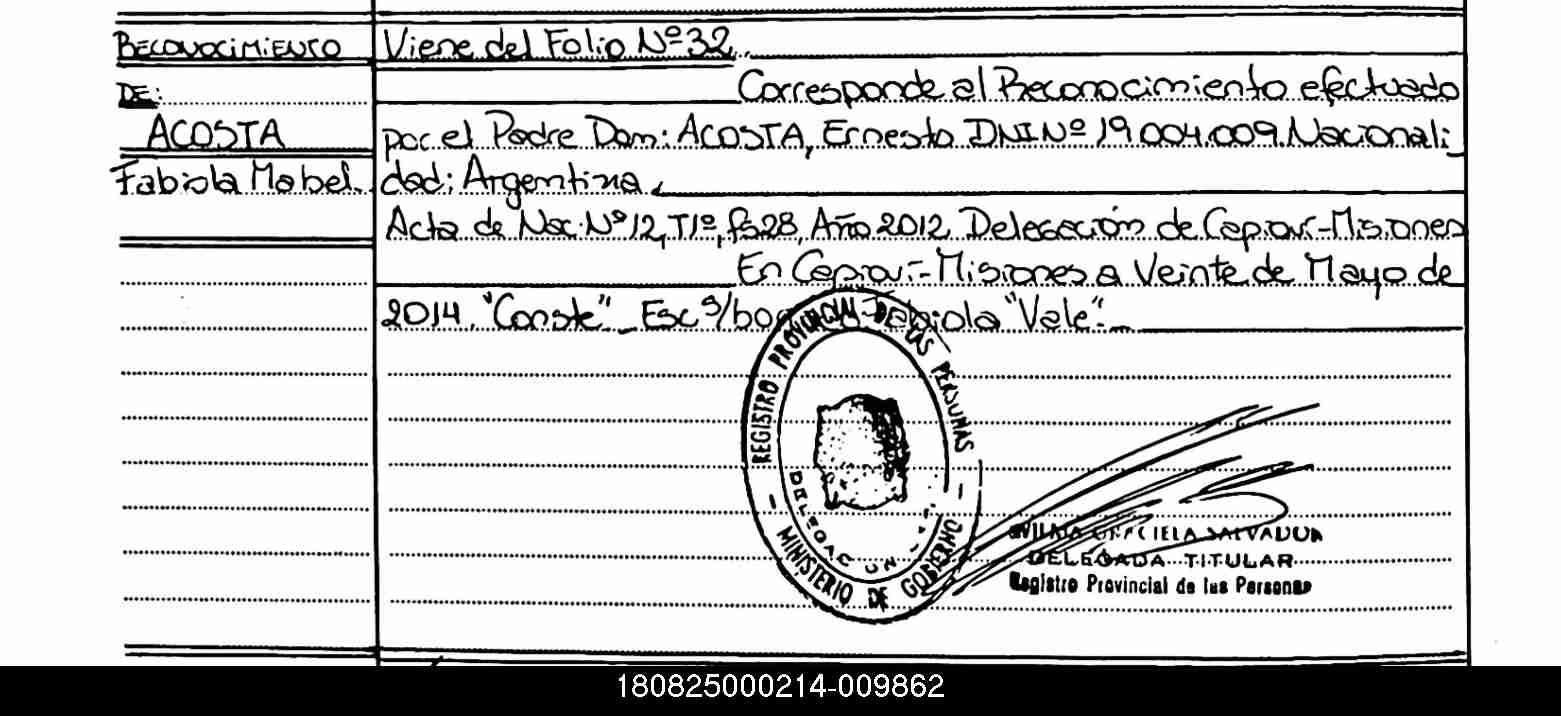 RECONOCIMIENTO
DE:
ACOSTA
Fabiola Mabel.
Viene del Folio Nº 32.
Corresponde al Reconocimiento efectuado
por el Padre Dom: ACOSTA, Ernesto DNI Nº 19.004.009. Nacionali
dad: Argentina.
Acta de Nac. Nº 12, T1º, fs 28, Año 2012. Delegación de Capioví-Misiones
En Capioví-Misiones a Veinte de Mayo de
2014. "Conste" _ Esc s/bo Fabiola "Vale".
REGISTRO PROVINCIAL DE LAS PERSONAS
- MINISTERIO DE GOBIERNO -
VILMA GRACIELA SALVADOR
DELEGADA TITULAR
Registro Provincial de las Personas
180825000214-009862